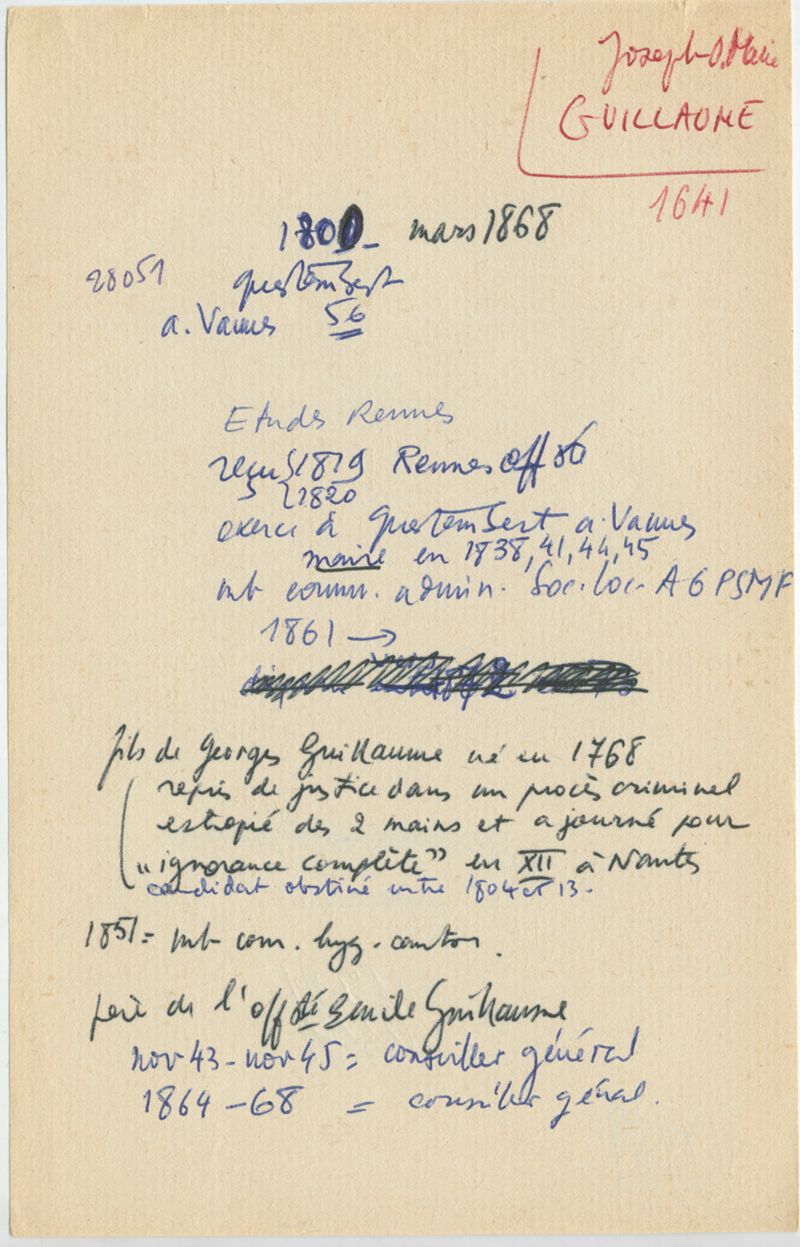 Joseph O. Marie
GUILLAUME
1641
1800 - mars 1868
28051 Questembert
a. Vannes 56
Etudes Rennes
reçu 1819 Rennes off sté
5 1820
exerce à Questembert a. Vannes
maire en 1838, 41, 44, 45
mb comm. admin. Soc. loc. AGPSMF
1861 →
fils de Georges Guillaume né en 1768
repris de justice dans un procès criminel
estropié des 2 mains et ajourné pour
"ignorance complète" en XII à Nantes
candidat obstiné entre 1804 et 13.
1851 = mb com. hyg. canton.
père de l'off sté Emile Guillaume
nov 43 - nov 45 = conseiller général
1864 - 68 = conseiller génal.